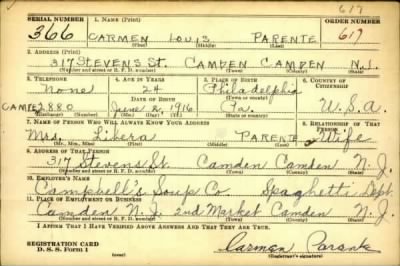 617
SERIAL NUMBER 1. NAME (Print) ORDER NUMBER
366 CARMEN LOUIS PARENTE 617
(First) (Middle) (Last)
2. ADDRESS (Print)
317 STEVENS St. CAMDEN CAMDEN N.J.
(Number and street or R. F. D. number) (Town) (County) (State)
3. TELEPHONE 4. AGE IN YEARS 5. PLACE OF BIRTH 6. COUNTRY OF CITIZENSHIP
None 24 Philadelphia
DATE OF BIRTH (Town or county)
CAMD 2880 June 2, 1916 Pa. U.S.A.
(Exchange) (Number) (Mo.) (Day) (Yr.) (State or country)
7. NAME OF PERSON WHO WILL ALWAYS KNOW YOUR ADDRESS 8. RELATIONSHIP OF THAT PERSON
Mrs. Libera PARENTE Wife
(Mr., Mrs., Miss) (First) (Middle) (Last)
9. ADDRESS OF THAT PERSON
317 Stevens St. Camden Camden N.J.
(Number and street or R. F. D. number) (Town) (County) (State)
10. EMPLOYER'S NAME
Campbell's Soup Co. Spaghetti Dept
11. PLACE OF EMPLOYMENT OR BUSINESS
Camden N.J. 2nd Market Camden N.J.
(Number and street or R. F. D. number) (Town) (County) (State)
I AFFIRM THAT I HAVE VERIFIED ABOVE ANSWERS AND THAT THEY ARE TRUE.
REGISTRATION CARD
D. S. S. Form 1 Carmen Parente
(Registrant's signature)